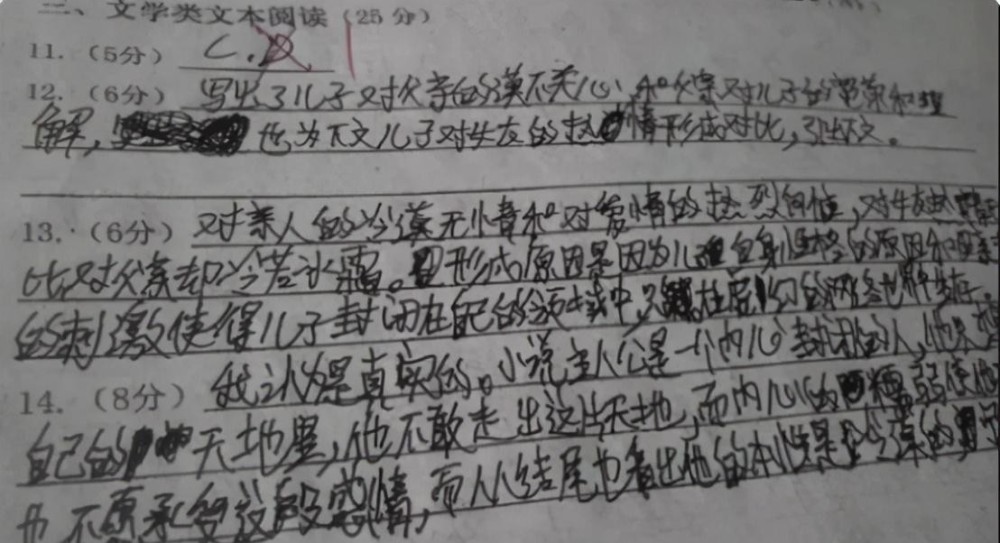 二、文学类文本阅读（25分）
11.（5分） C.D
12.（6分） 写出了儿子对父亲的漠不关心，和父亲对儿子的
解，也为下文儿子对女友的热情形成对比，引出下文。
13.（6分） 对亲人的冷漠无情和对爱情的热烈向往，对女友
比对父亲却冷若冰霜。形成原因是因为儿自身性格的原因和
的刺激使得儿子封闭在自己的领域中，只
14.（8分） 我认为是真实的。小说主人公是一个内心封闭的人，他
自己的天地里，他不敢走出这片天地，而内心的懦弱使他
也不愿承包这段感情，而从结尾也看出他的本性是冷漠的